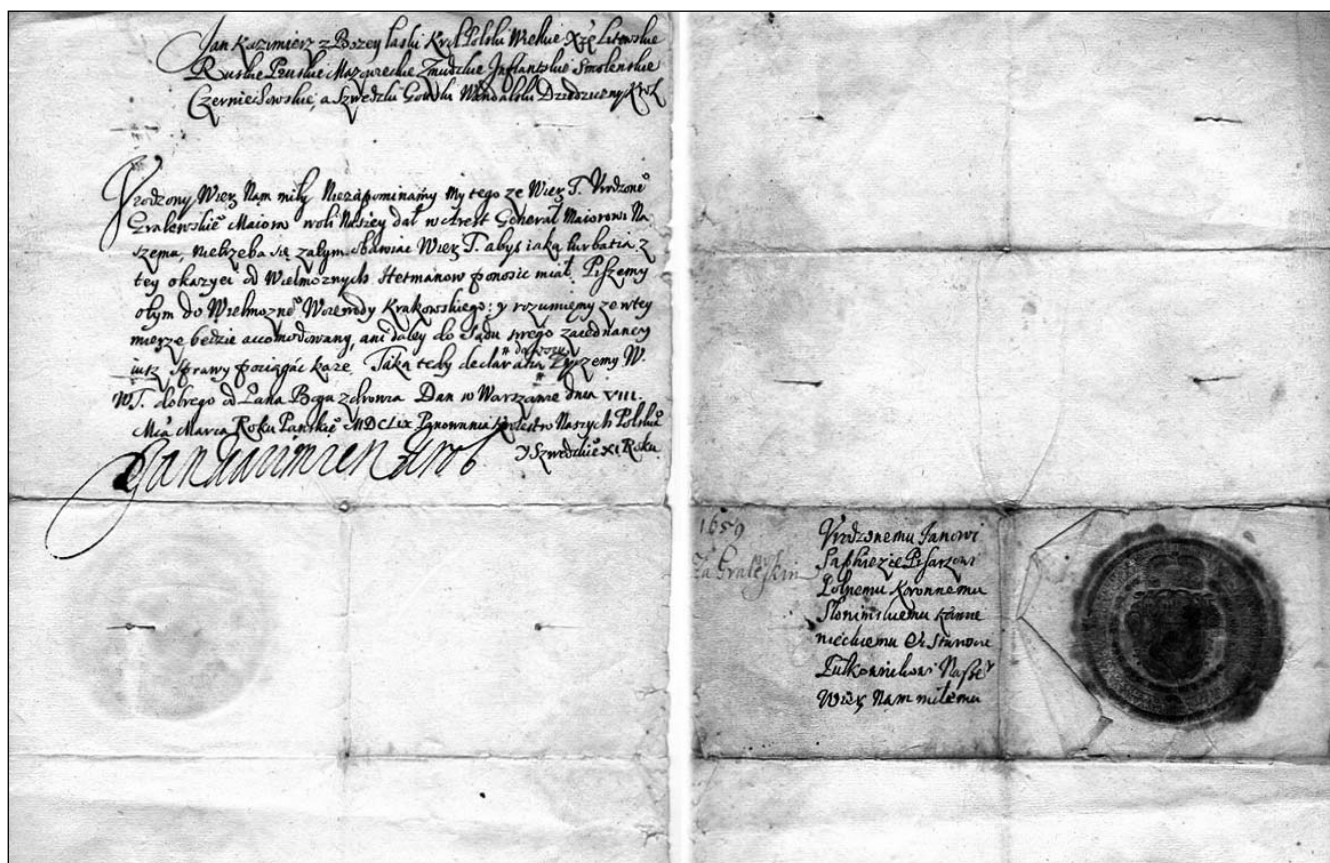 Jan Kazimierz z Bozey łaski Krol Polski Wielkie Xżę Litewskie
Ruskie Pruskie Mazowieckie Zmudzkie Inflantskie Smolenskie
Czerniechowskie, a Szwedzki Gotski Wandalski Dziedziczny Krol
Vrodzony Wierz. Nam miły Niezapominamy my tego ze Wierz T. Vrodzone°
Gralewskie° Maiora woli Naszey dał w Arest Generał Maiorowi Na
szemu, nietrzeba się zatym obawiac Wierz T. abys iaką turbatią z
tey okazyei od Wielmoznych Hetmanow ponosic miał. Piszemy
otym do Wielmozne° Woiewody Krakowskiego: y rozumiemy ze wtey
mierze będzie accomodowany, ani daley do Sądu swego zaiednaney
iusz sprawy pociągac kaze. Taką tedy declaratią Zyczemy W.
W T. dobrego od Pana Boga zdrowia Dan w Warszawie dnia VIII.
Mca Marca Roku Panskie° MDCLIX Panowania Krolestw Naszych Polskie°
y Szwedzkie° XI Roku.
Jan Kazimierz Krol
1659
Vrodzonemu Janowi
Saphiezie Pisarzowi
Polnemu Koronnemu
Słonimskiemu
nieckiemu Staroscie
Pułkownikowi Nasze
Wierz Nam miłemu